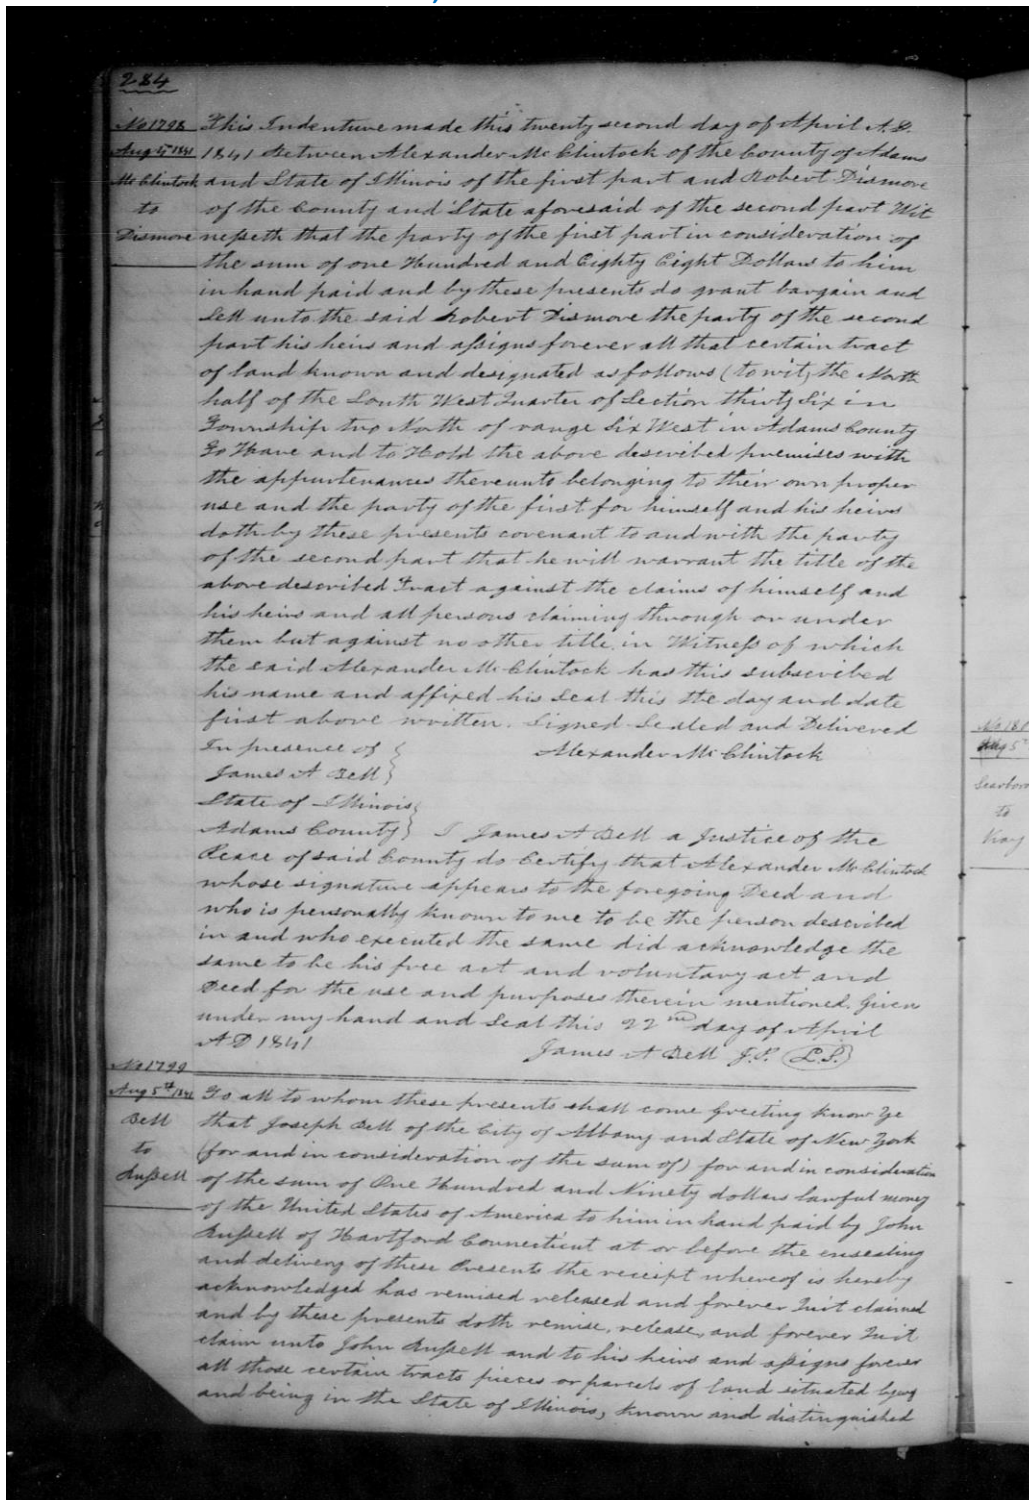 284
No 1798
Aug 4th 1841
McClintock
to
Dismore
This Indenture made this twenty second day of April A.D.
1841 Between Alexander McClintock of the County of Adams
and State of Illinois of the first part and Robert Dismore
of the County and State aforesaid of the second part Wit
nesseth that the party of the first part in consideration of
the sum of one Hundred and Eighty Eight Dollars to him
in hand paid and by these presents do grant bargain and
Sell unto the said Robert Dismore the party of the second
part his heirs and assigns forever all that certain tract
of land known and designated as follows (to wit) the North
half of the South West Quarter of Section thirty Six in
Township two North of range Six West in Adams County
To Have and to Hold the above described premises with
the appurtenances thereunto belonging to their own proper
use and the party of the first for himself and his heirs
doth by these presents covenant to and with the party
of the second part that he will warrant the title of the
above described Tract against the claims of himself and
his heirs and all persons claiming through or under
them but against no other title. in Witness of which
the said Alexander McClintock has this subscribed
his name and affixed his Seal this the day and date
first above written. Signed Sealed and Delivered
In presence of
Alexander McClintock
James A Bell
State of Illinois
Adams County } I James A Bell a Justice of the
Peace of said County do Certify that Alexander McClintock
whose signature appears to the foregoing Deed and
who is personally known to me to be the person described
in and who executed the same did acknowledge the
same to be his free act and voluntary act and
Deed for the use and purposes therein mentioned. Given
under my hand and Seal this 22nd day of April
A D 1841
James A Bell J.P. (L.S.)
No 1799
Aug 5th 1841
Bell
to
Russell
To all to whom these presents shall come Greeting Know Ye
that Joseph Bell of the City of Albany and State of New York
(for and in consideration of the sum of) for and in consideration
of the sum of One Hundred and Ninety dollars lawful money
of the United States of America to him in hand paid by John
Russell of Hartford Connecticut at or before the ensealing
and delivery of these Presents the receipt whereof is hereby
acknowledged has remised released and forever Quit claimed
and by these presents doth remise, release, and forever Quit
claim unto John Russell and to his heirs and assigns forever
all those certain tracts pieces or parcels of land situated lying
and being in the State of Illinois, known and distinguished
Aug 5th
to